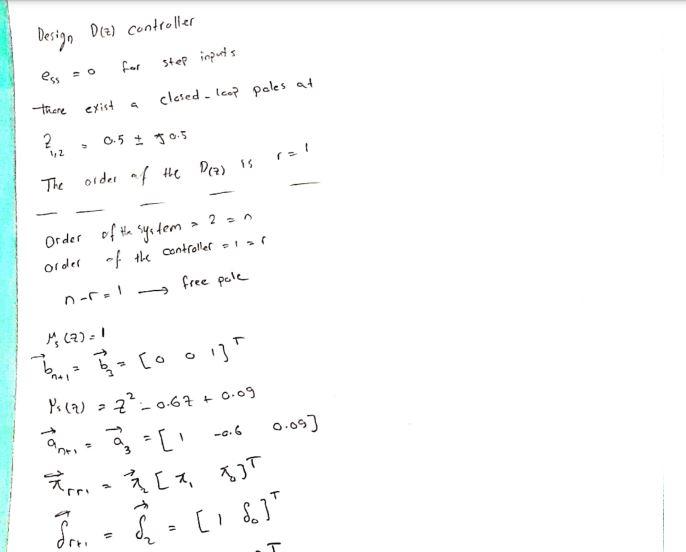 Design D(z) controller
ess = 0 for step inputs
there exist a closed-loop poles at
z1,2 = 0.5 ± j0.5
The order of the D(z) is r = 1
Order of the system = 2 = n
order of the controller = 1 = r
n-r = 1 → free pole
Ms(z) = 1
b⃗n+1 = b⃗3 = [0 0 1]T
Ys(z) = z² - 0.6z + 0.09
a⃗n+1 = a⃗3 = [1 -0.6 0.09]
π⃗r+1 = π⃗2 [π1 π0]T
δ⃗r+1 = δ⃗2 = [1 δ0]T
T